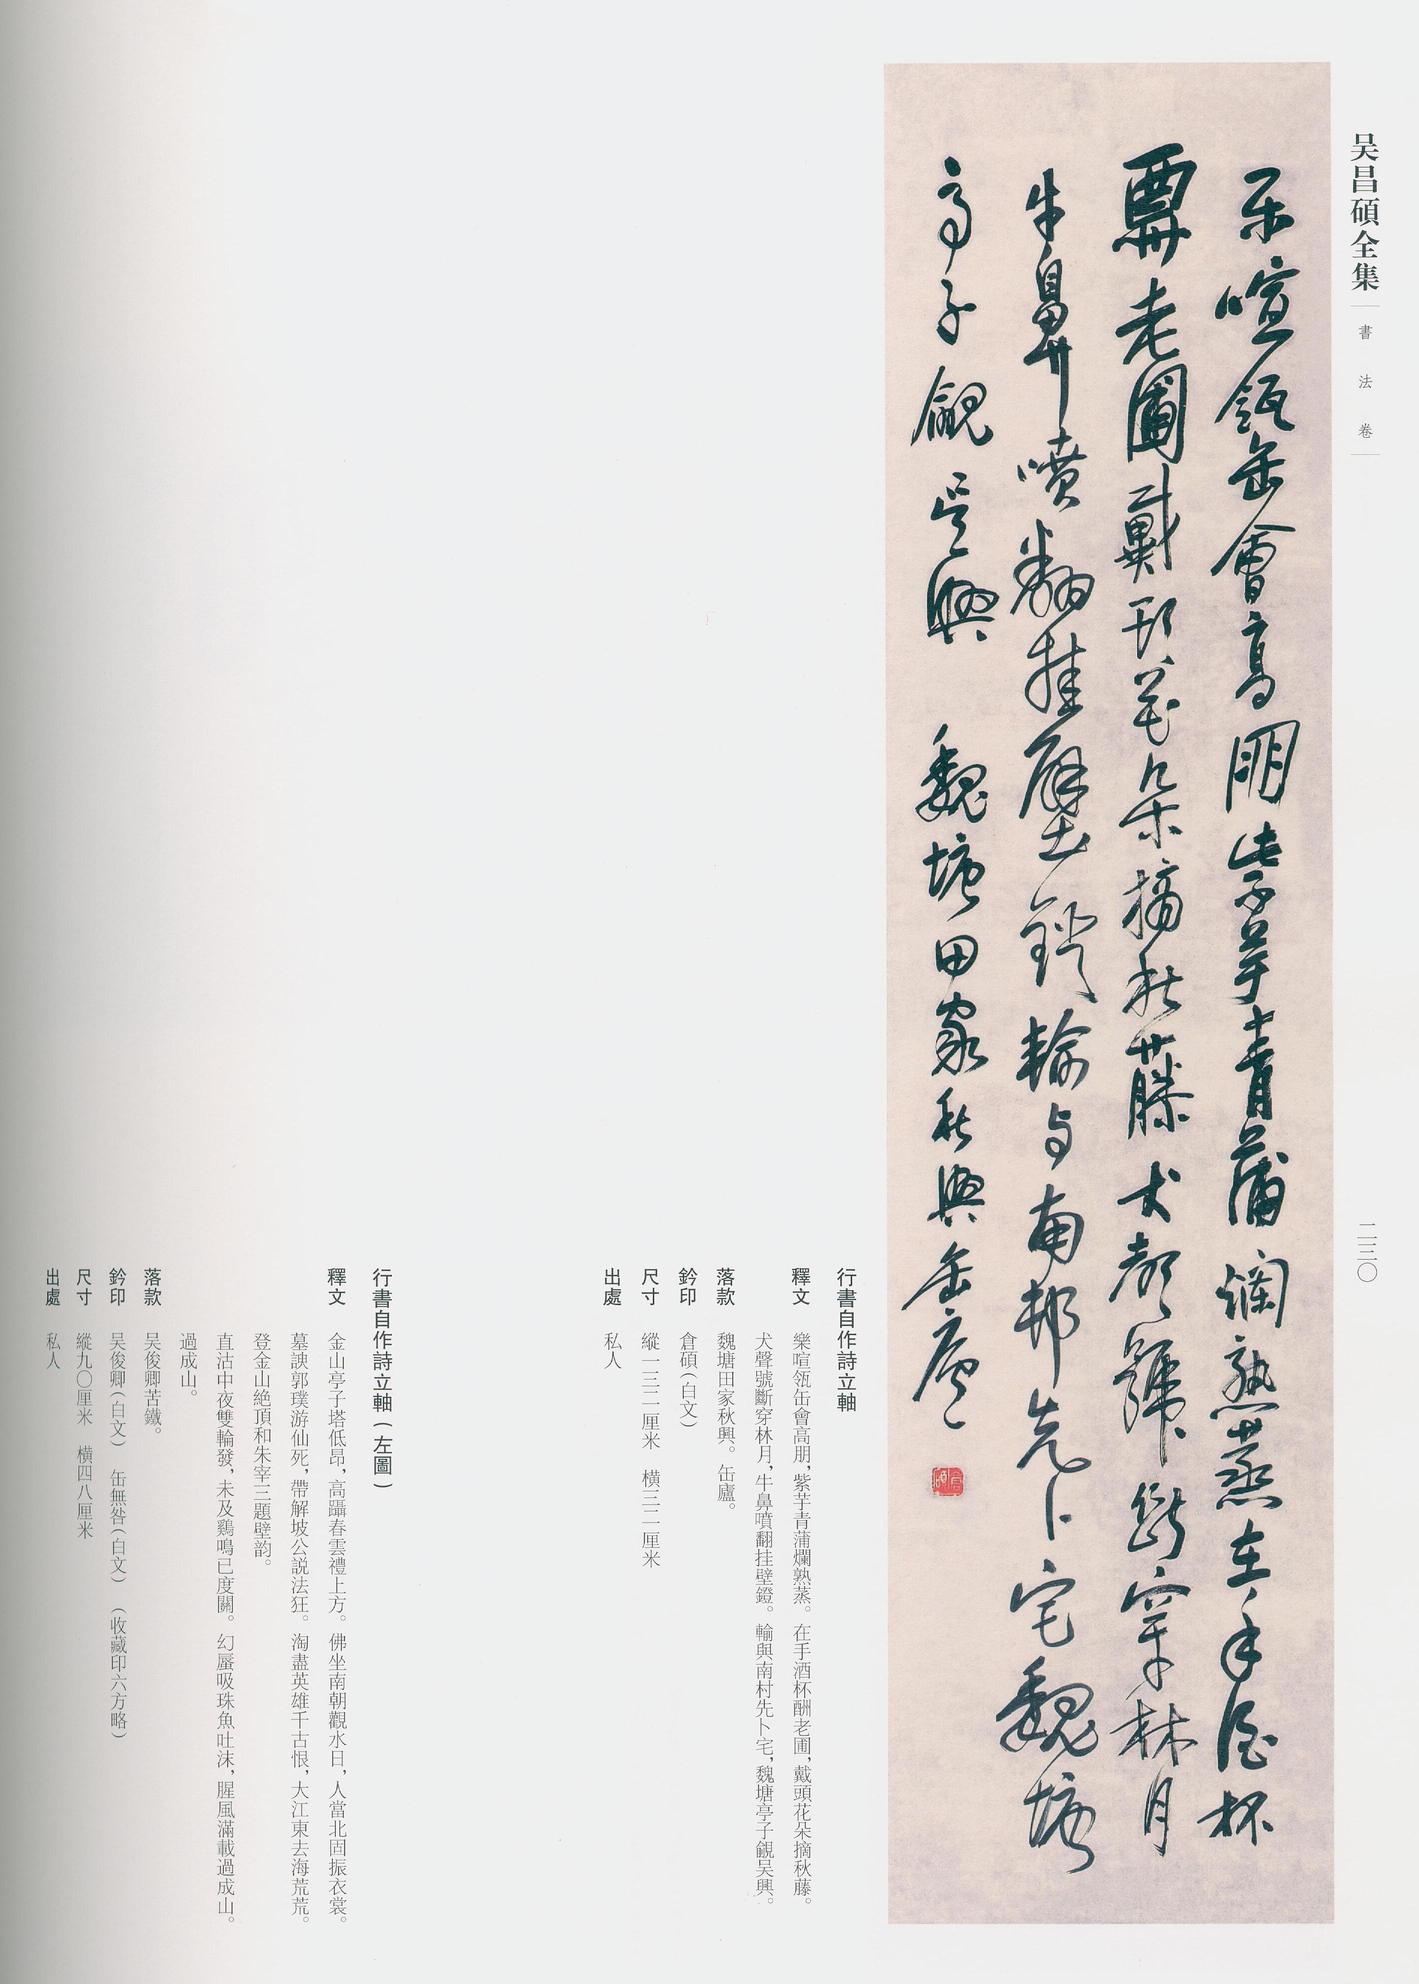 吴昌碩全集
書法卷
二三〇
乐喧瓴缶會高朋紫芋青蒲爛熟蒸在手酒杯
老圃戴頭花朵摘秋藤犬聲號斷穿林月
牛鼻噴翻挂壁鐙輸与南邨先卜宅魏塘
亭子覦吴興 魏塘田家秋興 缶廬
行書自作詩立軸
釋文 樂喧瓴缶會高朋，紫芋青蒲爛熟蒸。在手酒杯酬老圃，戴頭花朵摘秋藤。
犬聲號斷穿林月，牛鼻噴翻挂壁鐙。輸與南村先卜宅，魏塘亭子覦吴興。
落款 魏塘田家秋興。缶廬。
鈐印 倉碩（白文）
尺寸 縱一三二厘米 橫三二厘米
出處 私人
行書自作詩立軸（左圖）
釋文 金山亭子塔低昂，高躡春雲禮上方。佛坐南朝觀水日，人當北固振衣裳。
墓諛郭璞游仙死，帶解坡公説法狂。淘盡英雄千古恨，大江東去海荒荒。
登金山絶頂和朱宰三題壁韵。
直沽中夜雙輪發，未及鷄鳴已度關。幻蜃吸珠魚吐沫，腥風滿載過成山。
過成山。
落款 吴俊卿苦鐵。
鈐印 吴俊卿（白文） 缶無咎（白文） （收藏印六方略）
尺寸 縱九〇厘米 橫四八厘米
出處 私人